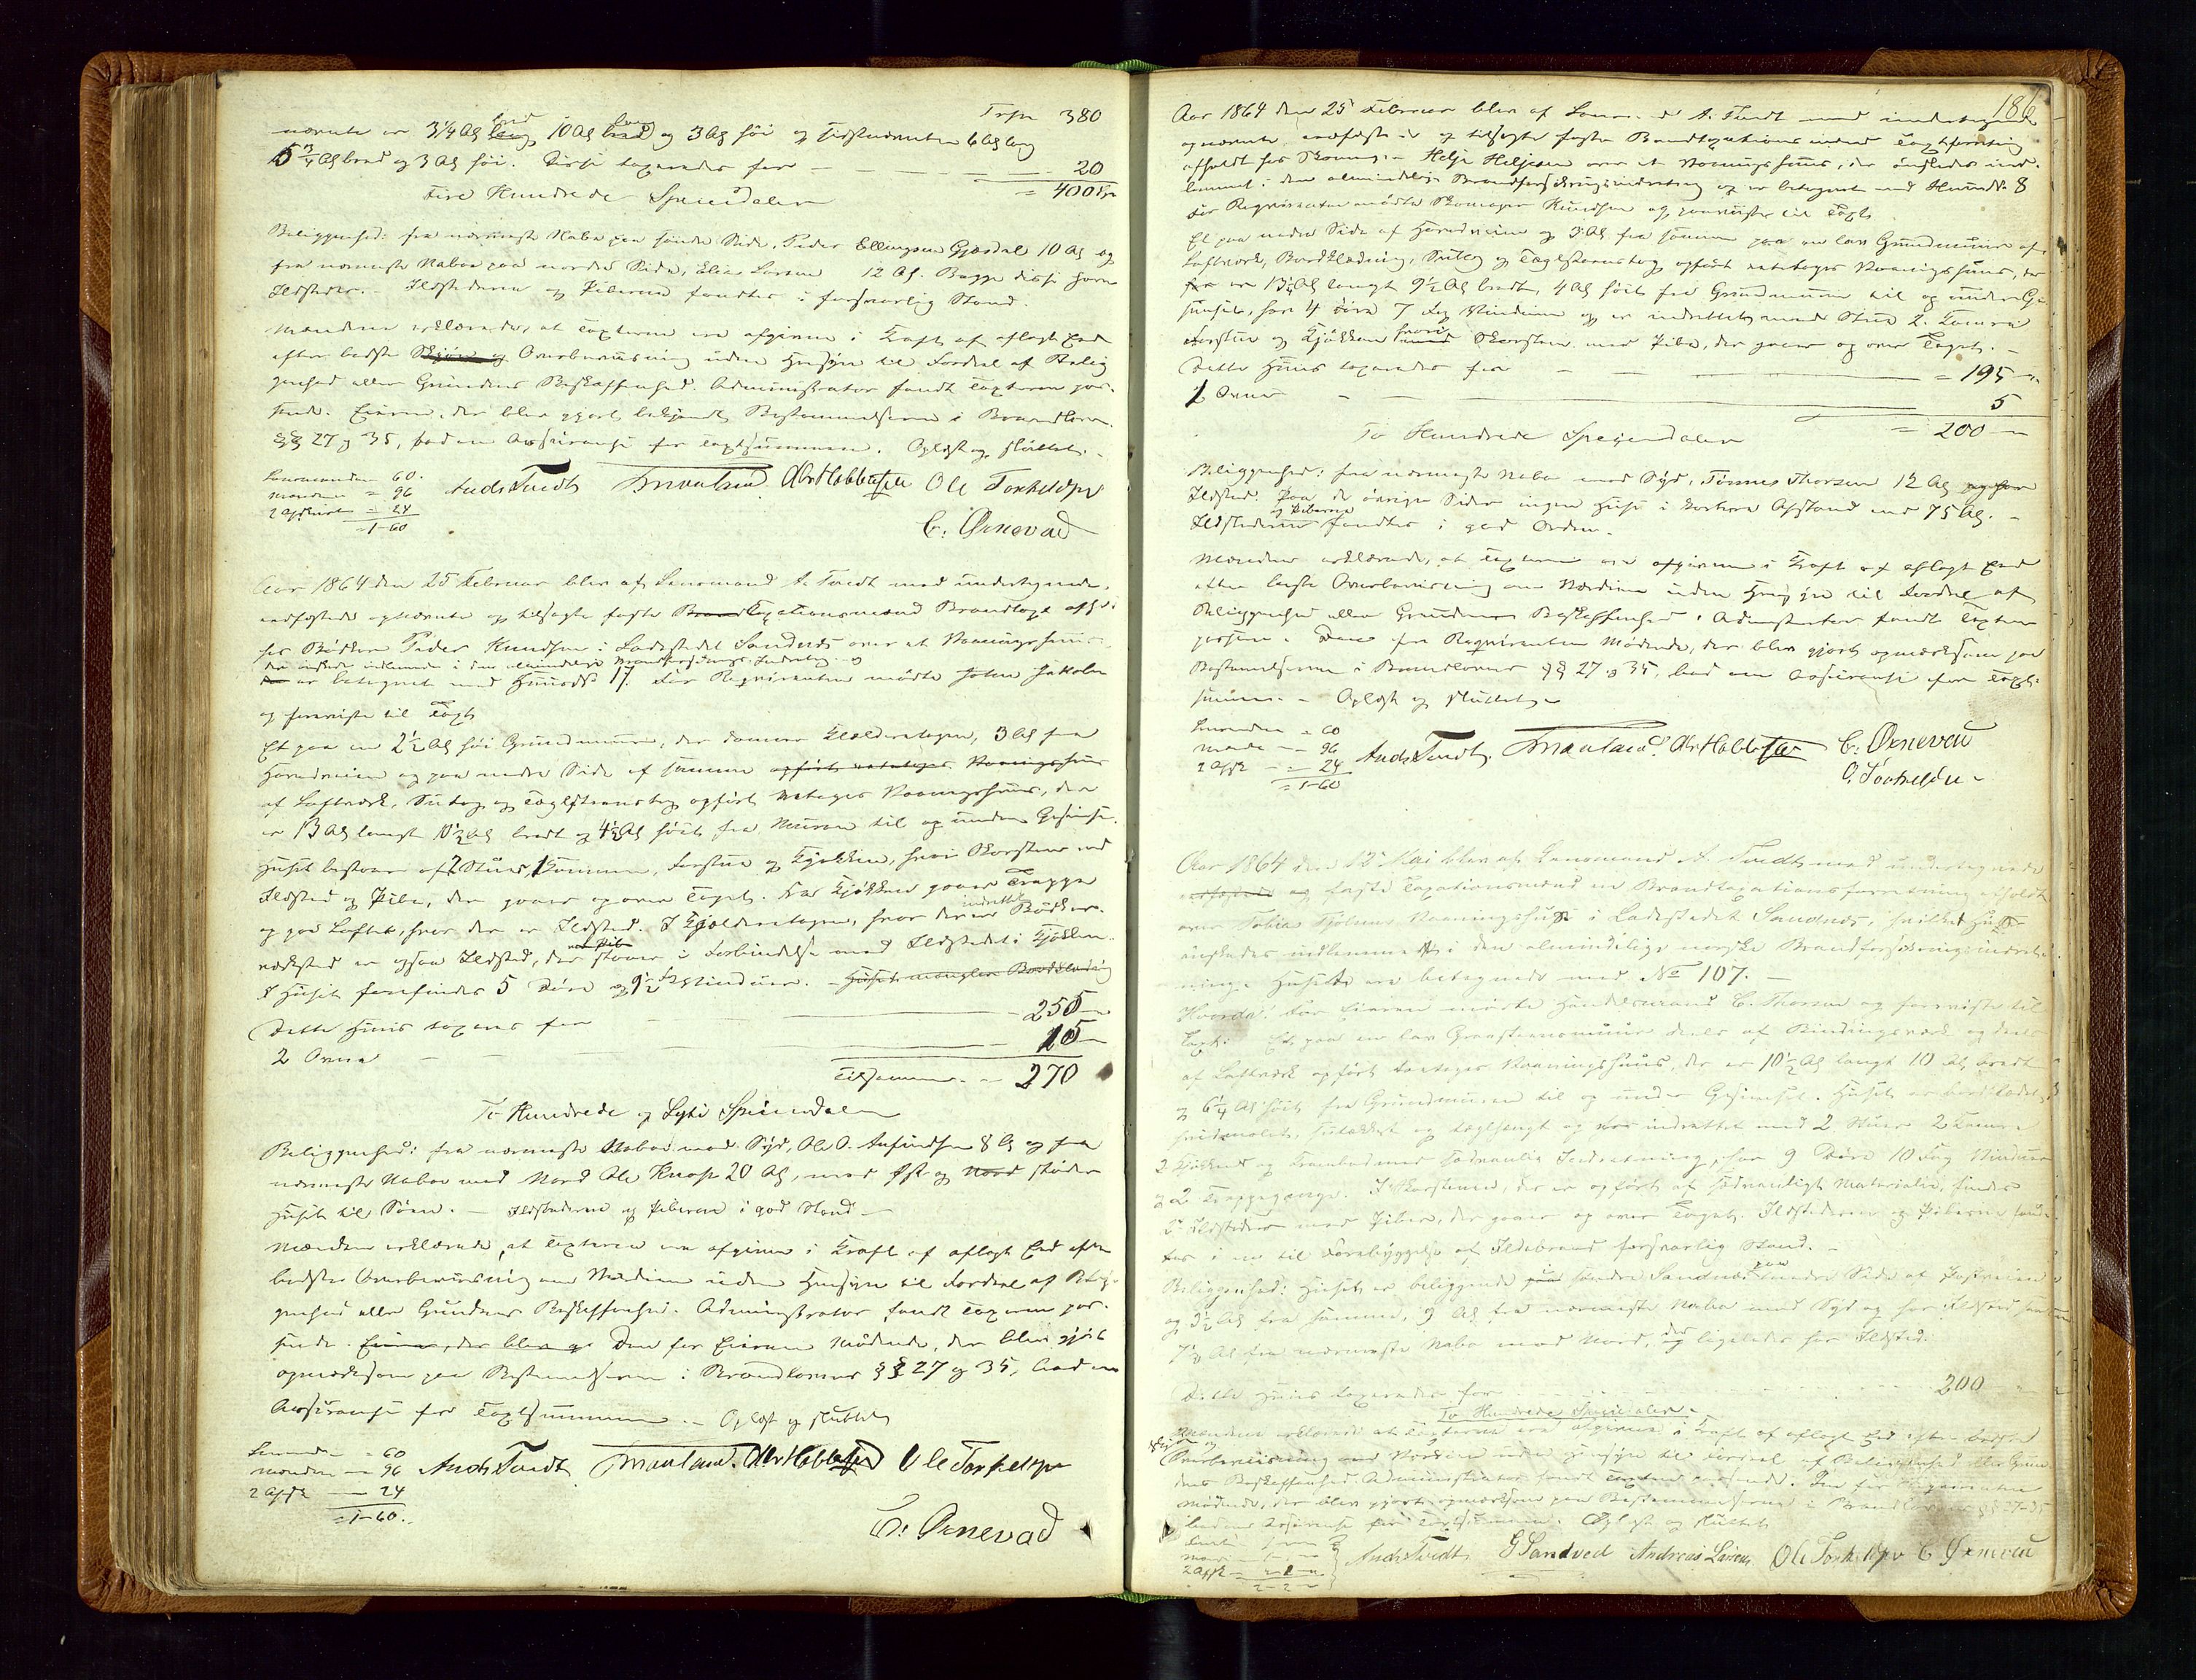 Trspr 380
nævnte er 3¼ Al lang bred 10 Al bred lang og 3 Al høi og sidstnævnte 6 Al lang
5¾ Al bred og 3 Al høi. Disse taxeredes for — 20
Fire Hundrede Speciedaler = 400 Spd
Beliggenhed: fra nærmeste Nabo paa søndre Side, Peder Ellingsen Gjesdal 10 Al og
fra nærmeste Nabo paa nordre Side, Elias Larsen 12 Al. Begge disse have
Ildsteder. – Ildstederne og Piberne fandtes i forsvarlig Stand.
Mændene erklærede, at Taxterne ere afgivne i Kraft af aflagt Eed
efter bedste Skjøn og Overbeviisning uden Hensyn til Fordeel af Belig
genhed eller Grundens Beskaffenhed. Administrator fandt Taxterne pas-
sende. Eieren, der blev gjort bekjendt Bestemmelserne i Brandloven
§§ 27 og 35, bad om Assurance for Taxtsummen. Oplæst og sluttet. –
Lensmanden 60.
Mændene = 96
2 Afskrift = 24
= 1–60
Ands Tvedt Ole Torkelsen
C: Ørnevad
Aar 1864 den 25 Februar blev af Lensmand A. Tvedt med undertegnede,
edfæstede opnævnte og tilsagte faste Brand Taxationsmænd Brandtaxt afholdt
hos Bødker Peder Knudsen i Ladestedet Sandnes over et Vaaningshuus
der ønskes indlemmet i den almindelige Brandforsikrings Indretning og
er betegnet med Huusno 17. For Reqvirenten mødte John Jakobsen
og foreviste til Taxt
Et paa en 2½ Al høi Grundmuur, der danner Kjælderetagen, 3 Al fra
Hovedveien og paa nedre Side af samme opført etetages Vaaningshuus
af Loftværk, Sutag og Taglsteenstag opført etetages Vaaningshuus, der
er 13 Al langt 10½ Al bredt og 4½ Al høit fra Muren til og under Gesimse.
Huset bestaar af 2 Stuer, 1 Kammer, Forstue og Kjøkken, hvori Skorsteen med
Ildsted og Pibe, der gaaer op over Taget. Fra Kjøkken gaaer Trappe
op paa Loftet, hvor der er Ildsted. I Kjælderetagen, hvor der er indrettet Bødker-
værksted er ogsaa Ildsted, der staaer i Forbindelse med Ildstedet i Kjøkken
I Huset forefindes 5 Døre og 9½ Fag Vinduer. – Huset mangler Bordklædning
Dette Huus taxeres for — 255
2 Ovne — 15
Tilsammen = 270
To Hundrede og Sytti Speciedaler
Beliggenhed: fra nærmeste Nabo mod Syd, Ole O. Aufindsen 8 Al og fra
nærmeste Nabo mod Nord Ole Knass 20 Al, mod Øst og Nord støder
Huset til Søen. – Ildstederne og Piberne i god Stand –
Mændene erklærede, at Taxterne ere afgivne i Kraft af aflagt Eed efter
bedste Overbeviisning om Værdien uden Hensyn til Fordeel af Belig-
genhed eller Grundens Beskaffenhed. Administrator fandt Taxterne pas-
sende. Eieren, der blev gj Den for Eieren Mødende, der blev gjort
opmærksom paa Bestemmelserne i Brandlovens §§ 27 og 35, bad om
Assurance for Taxtsummen. – Oplæst og sluttet
Lensmanden = 60
Mændene = 96
2 Afskr — 24
= 1–60.
Ands Tvedt Ole Torkelsen
C: Ørnevad
186
Aar 1864 den 25 Februar blev af Lensmand A. Tvedt med undertegnede
opnævnte edfæstede og tilsagte faste Brandtaxationsmænd Taxtforretning
afholdt hos Skomager Helje Heljesen over et Vaaningshuus, der ønskedes ind-
lemmet i den almindelige Brandforsikringsindretning og er betegnet med Huusno 8
For Reqvirenten mødte Skomager Knudsen og foreviste til Taxt
Et paa nedre Side af Hovedveien og 3 Al fra samme paa en lav Grundmuur af
Loftværk, Bordklædning, Sutag og Taglsteenstag opført etetages Vaaningshuus, der
er 13¼ Al langt 9½ Al bredt, 4 Al høit fra Grundmuren til og under Ge-
simset, har 4 Døre 7 Fag Vinduer og er indrettet med Stue 2 Kamre
Forstue og Kjøkken hvori Skorsteen med Pibe, der gaaer op over Taget. –
Dette Huus taxeredes for — = 195
1 Ovn — 5
To Hundrede Speciedaler = 200
Beliggenhed: fra nærmeste Nabo mod Syd, Tønnes Thorsen 12 Al og har
Ildsted. Paa de øvrige Sider ingen Huse i kortere Afstand end 75 Al. –
Ildstederne og Piberne fandtes i god Orden.
Mændene erklærede, at Taxterne ere afgivne i Kraft af aflagt Eed
efter bedste Overbeviisning om Værdien uden Hensyn til Fordeel af
Beliggenhed eller Grundens Beskaffenhed. Administrator fandt Taxterne
passende. Den for Reqvirenten Mødende, der blev gjort opmærksom paa
Bestemmelserne i Brandlovens §§ 27 og 35, bad om Assurance for Taxt-
summen. – Oplæst og sluttet.
Lensmanden = 60
Mænde — 96
2 Afskr — = 24
= 1–60
Ands Tvedt C: Ørnevad
O. Torkelsen
Aar 1864 den 12 Mai blev af Lensmand A. Tvedt med undertegnede
edfæstede og faste Taxationsmænd en Brandtaxationsforretning afholdt
over Tobias Vaaningshuse i Ladestedet Sandnes, hvilket Huus
ønskedes indlemmet i den almindelige norske Brandforsikringsindret-
ning. Huset er betegnet med No 107. –
For Eieren mødte Handelsmand C. Thorsen og foreviste til
Taxt: Et paa en lav Graasteensmuur deels af Bindingsværk og deels
af Loftværk opført toetages Vaaningshuus, der er 10½ Al langt 10 Al bredt
og 6¼ Al høit fra Grundmuren til og under Gesimset. Huset er bordklædt,
hvidmalet, og taglhængt og indrettet med 2 Stuer 2 Kamre
2 Kjøkken og Krambod med sædvanlig Indretning, har 9 Døre 10 Fag Vinduer
og 2 Trappegange. I Skorstenen, der er opført af sædvanligt Materiale, findes
2 Ildsteder med Piber, der gaaer op over Taget. Ildstederne og Piberne fand-
tes i en til Forebyggelse af Ildebrand forsvarlig Stand. –
Beliggenhed: Huset er beliggende søndre Sandnes paa nedre Side af Postveien
og 3½ Al fra samme, 9 Al fra nærmeste Nabo mod Syd og har Ildsted
7½ Al fra nærmeste Nabo mod Nord, der ligeledes har Ildsted.
Dette Huus taxeredes for — 200
To Hundrede Speciedaler. –
Mændene erklærede at Taxterne ere afgivne i Kraft af aflagt Eed efter bedste
Overbeviisning om Værdien uden Hensyn til Fordeel af Beliggenhed eller Grun-
dens Beskaffenhed. Administrator fandt Taxten passende. Den for Reqvirenten
Mødende, der blev gjort opmærksom paa Bestemmelserne i Brandlovens §§ 27–35
Assurance for Taxtsummen. Oplæst og sluttet
2 Afskr
Ands Tvedt G Sandved Andreas Larsen Ole Torkelsen C Ørnevad